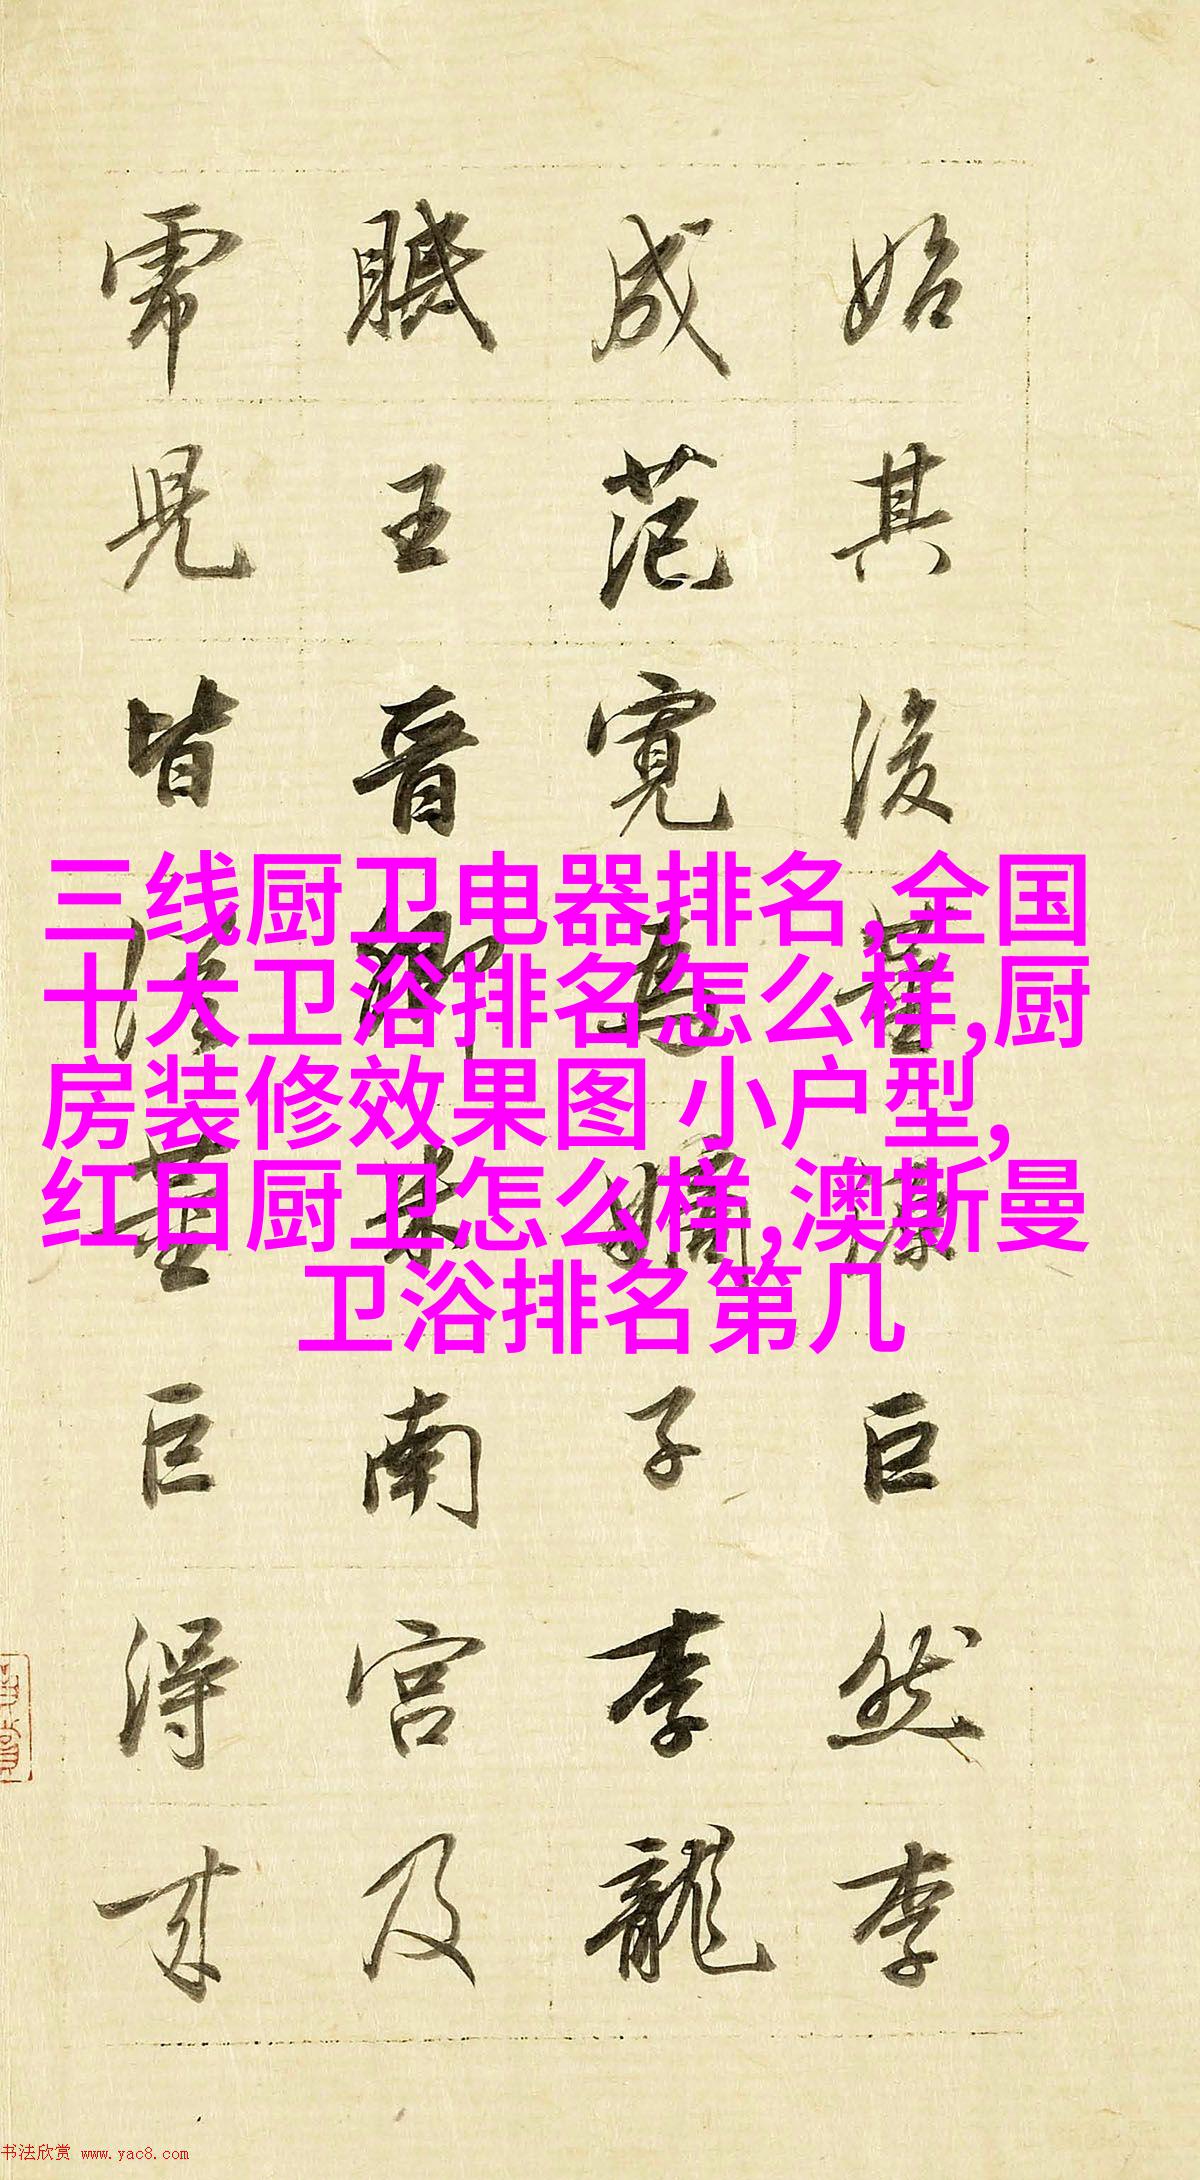 始其後董源巨然李
成范寬為嫡子李龍
眠王晉卿米南宮及
虎兒皆從董巨得來
三线厨卫电器排名,全国
十大卫浴排名怎么样,厨
房装修效果图 小户型,
红日厨卫怎么样,澳斯曼
卫浴排名第几
书法欣赏 www.yac8.com